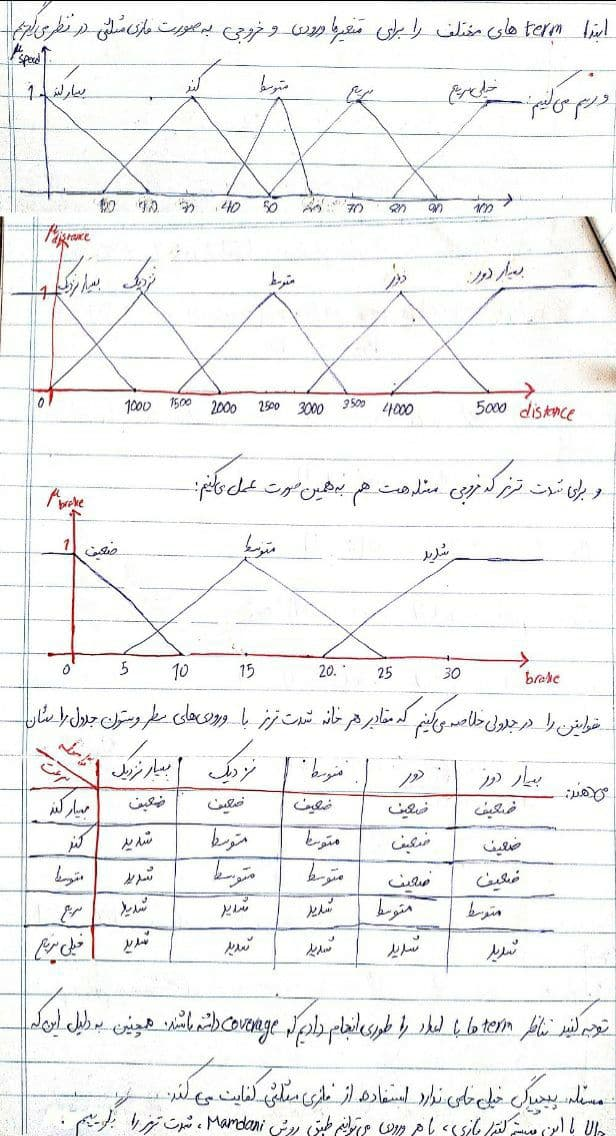 ابتدا term های مختلف را برای متغیرها ورودی و خروجی به صورت فازی مثلثی در نظر می‌گیریم
و رسم می‌کنیم:
μ speed
1
بسیار کند کند متوسط سریع خیلی سریع
10 20 30 40 50 60 70 80 90 100
μ distance
1
بسیار نزدیک نزدیک متوسط دور بسیار دور
0 1000 1500 2000 2500 3000 3500 4000 5000 distance
و برای شدت ترمز که خروجی مسئله هست هم به همین صورت عمل می‌کنیم:
μ brake
1
ضعیف متوسط شدید
0 5 10 15 20 25 30 brake
قوانین را در جدولی خلاصه می‌کنیم که مقادیر هر خانه شدت ترمز با ورودی‌های سطر و ستون جدول را نشان
می‌دهند:
فاصله سرعت بسیار نزدیک نزدیک متوسط دور بسیار دور
بسیار کند ضعیف ضعیف ضعیف ضعیف ضعیف
کند شدید متوسط متوسط ضعیف ضعیف
متوسط شدید متوسط متوسط ضعیف ضعیف
سریع شدید شدید شدید متوسط متوسط
خیلی سریع شدید شدید شدید شدید شدید
توجه کنید تناظر term ها با اعداد را طوری انجام دادیم که coverage داشته باشد. همچنین به دلیل این که
مسئله پیچیدگی خیلی خاصی ندارد استفاده از فازی مثلثی کفایت می کند.
حالا با این فازی، با هر ورودی می‌توانیم طبق روش Mamdani، شدت ترمز را بگوییم.